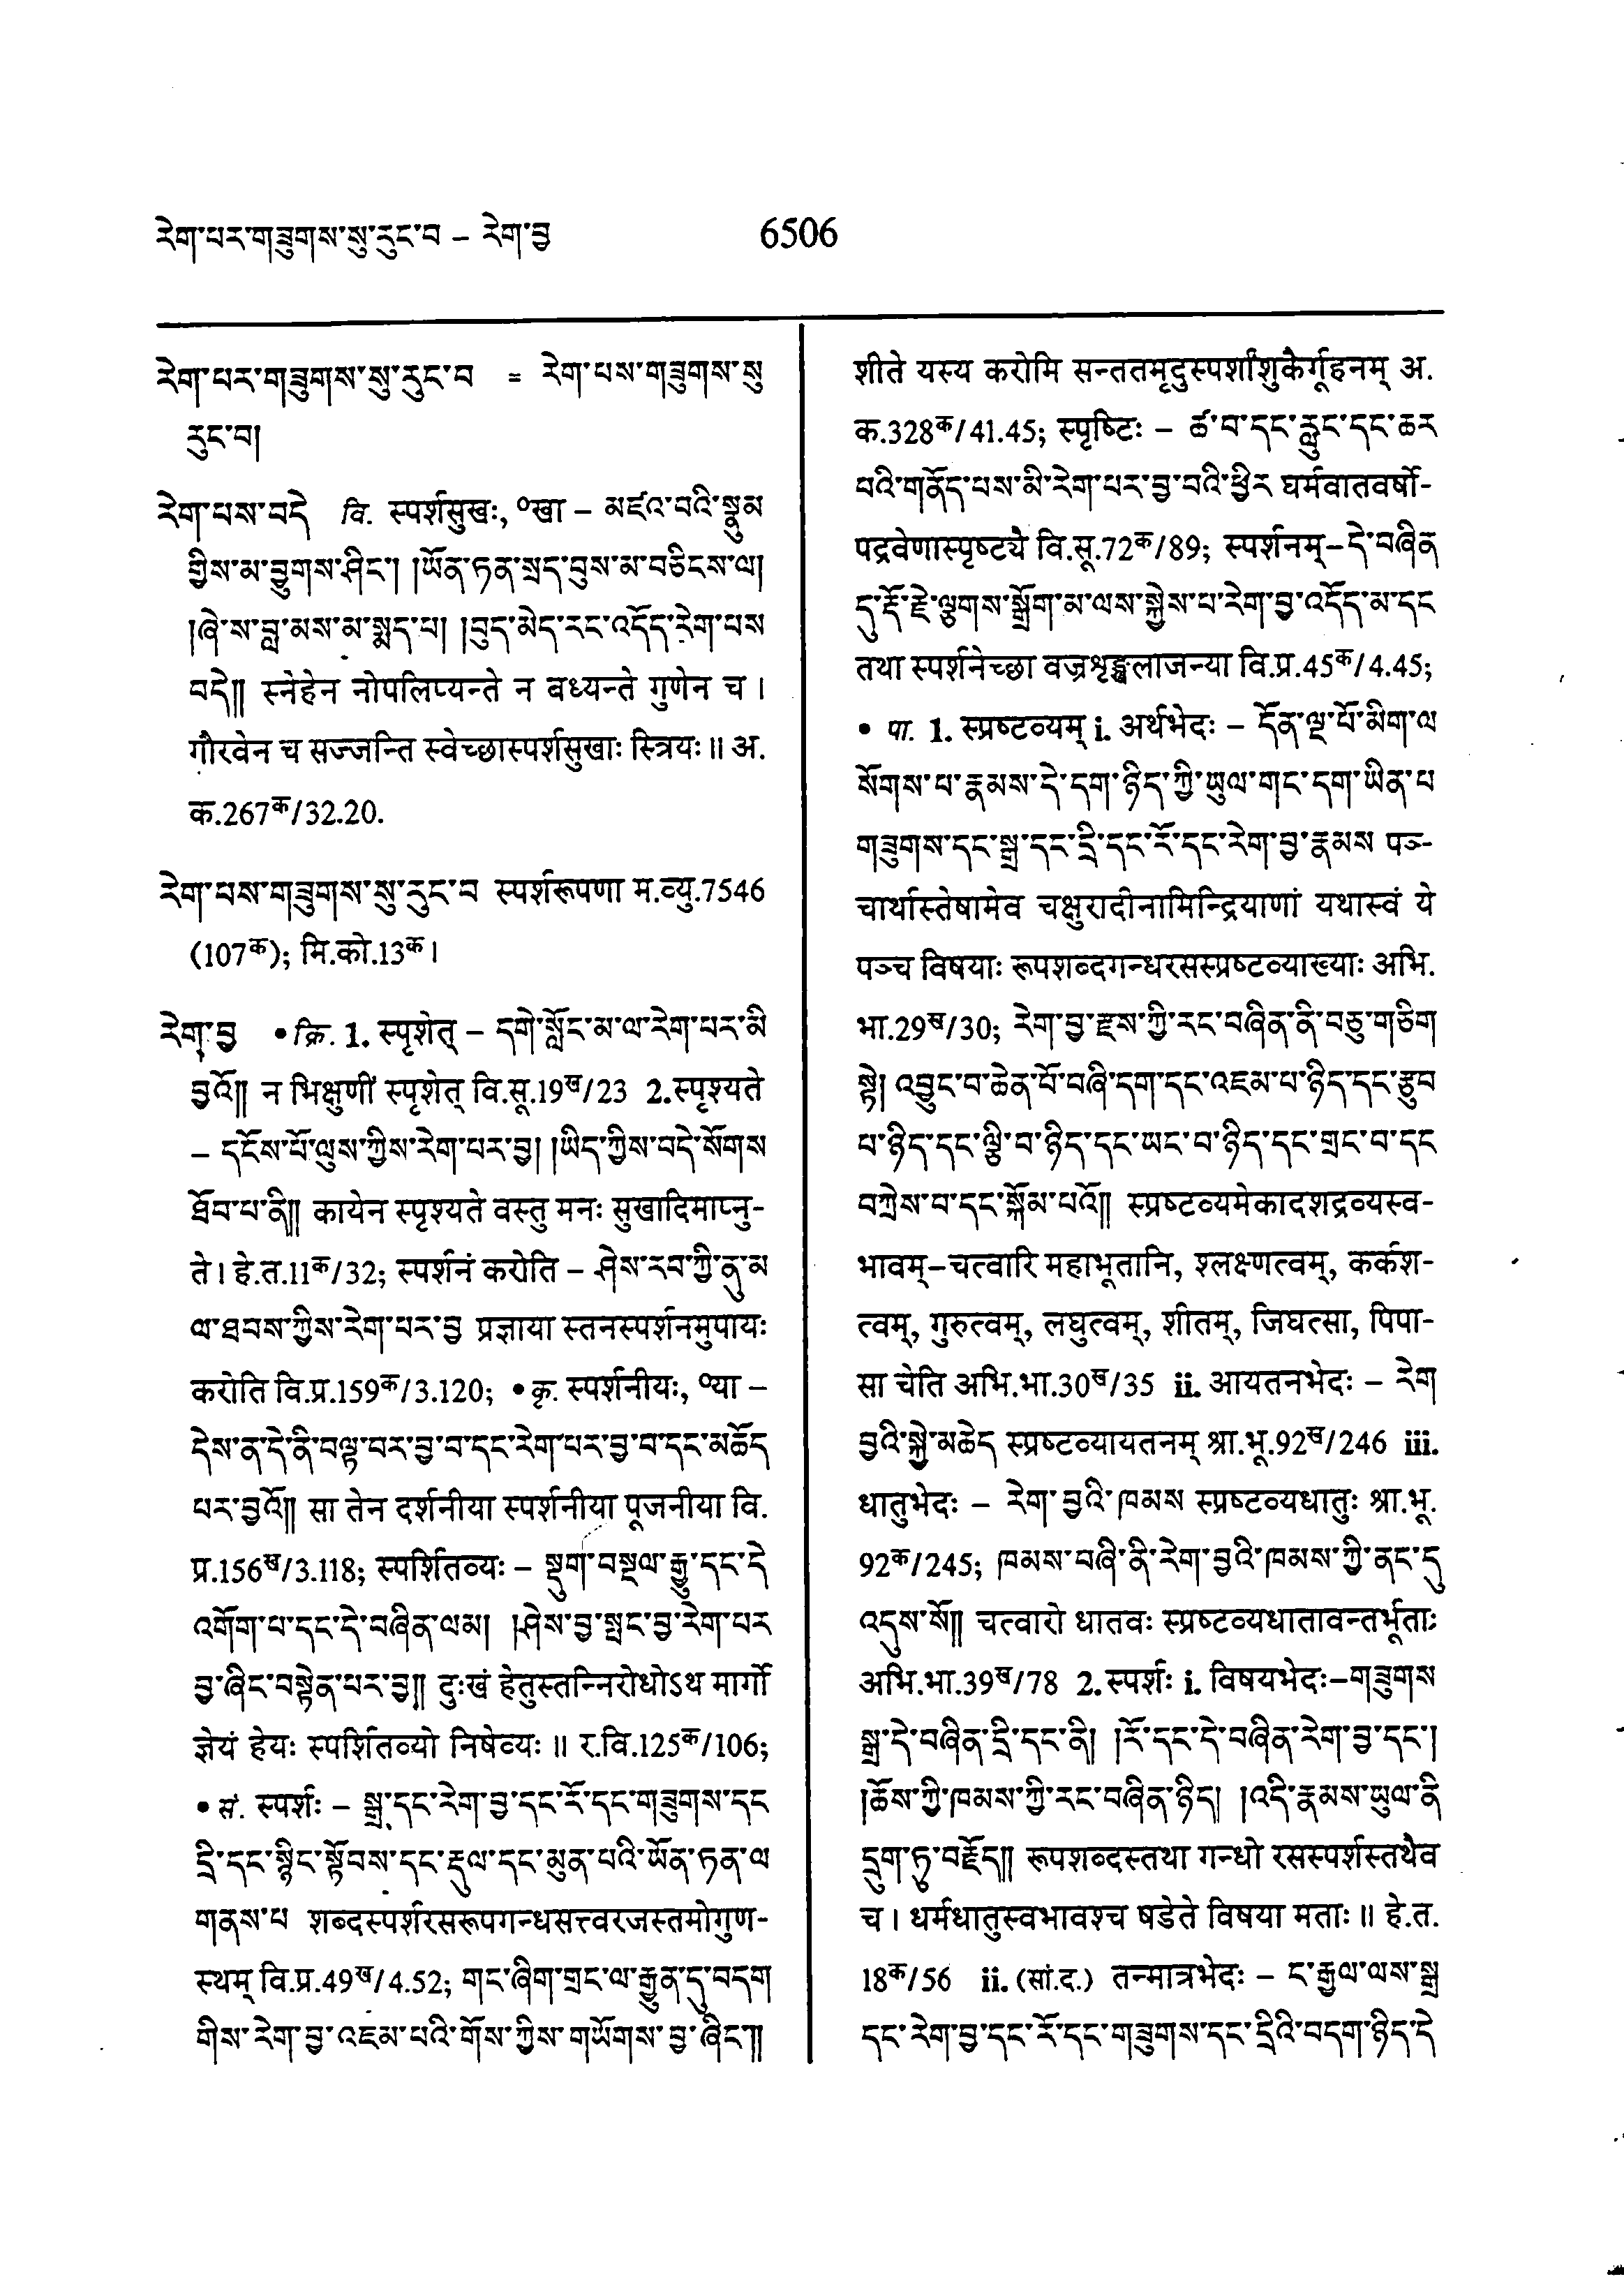 རེག་པར་གཟུགས་སུ་རུང་བ – རེག་བྱ
6506
རེག་པར་གཟུགས་སུ་རུང་བ = རེག་པས་གཟུགས་སུ
རུང་བ།
རེག་པས་བདེ वि. स्पर्शसुखः, ०खा – མཛའ་བའི་སྣུམ
གྱིས་མ་བྱུགས་ཤིང་། །ཡོན་ཏན་སྲད་བུས་མ་བཅིངས་ལ།
།ཞེ་ས་བླ་མས་མ་སྨད་པ། །བུད་མེད་རང་འདོད་རེག་པས
བདེ།། स्नेहेन नोपलिप्यन्ते न बध्यन्ते गुणेन च ।
गौरवेन च सज्जन्ति स्वेच्छास्पर्शसुखाः स्त्रियः ॥ अ.
क.267क/32.20.
རེག་པས་གཟུགས་སུ་རུང་བ स्पर्शरूपणा म.व्यु.7546
(107क); मि.को.13क ।
རེག་བྱ • क्रि. 1. स्पृशेत् – དགེ་སློང་མ་ལ་རེག་པར་མི
བྱའོ།། न भिक्षुणीं स्पृशेत् वि.सू.19ख/23 2. स्पृश्यते
– དངོས་པོ་ལུས་ཀྱིས་རེག་པར་བྱ། །ཡིད་ཀྱིས་བདེ་སོགས
ཐོབ་པ་ནི།། कायेन स्पृश्यते वस्तु मनः सुखादिमाप्नु-
ते । हे.त.11क/32; स्पर्शनं करोति – ཤེས་རབ་ཀྱི་ནུ་མ
ལ་ཐབས་ཀྱིས་རེག་པར་བྱ प्रज्ञाया स्तनस्पर्शनमुपायः
करोति वि.प्र.159क/3.120; • कृ. स्पर्शनीयः, ०या –
དེས་ན་དེ་ནི་བལྟ་བར་བྱ་བ་དང་རེག་པར་བྱ་བ་དང་མཆོད
པར་བྱའོ།། सा तेन दर्शनीया स्पर्शनीया पूजनीया वि.
प्र.156ख/3.118; स्पर्शितव्यः – སྡུག་བསྔལ་རྒྱུ་དང་དེ
འགོག་པ་དང་དེ་བཞིན་ལམ། །ཤེས་བྱ་སྤང་བྱ་རེག་པར
བྱ་ཞིང་བསྟེན་པར་བྱ།། दुःखं हेतुस्तन्निरोधोऽथ मार्गो
ज्ञेयं हेयः स्पर्शितव्यो निषेव्यः ॥ र.वि.125क/106;
• सं. स्पर्शः – སྒྲ་དང་རེག་བྱ་དང་རོ་དང་གཟུགས་དང
དྲི་དང་སྙིང་སྟོབས་དང་རྡུལ་དང་མུན་པའི་ཡོན་ཏན་ལ
གནས་པ शब्दस्पर्शरसरूपगन्धसत्त्वरजस्तमोगुण-
स्थम् वि.प्र.49ख/4.52; གང་ཞིག་གྲང་ལ་རྒྱུན་དུ་བདག
གིས་རེག་བྱ་འཇམ་པའི་གོས་ཀྱིས་གཡོགས་བྱ་ཞིང་།།
शीते यस्य करोमि सन्ततमृदुस्पर्शांशुकैर्गूहनम् अ.
क.328क/41.45; स्पृष्टिः – ཚ་བ་དང་རླུང་དང་ཆར
བའི་གནོད་པས་མི་རེག་པར་བྱ་བའི་ཕྱིར घर्मवातवर्षो-
पद्रवेणास्पृष्ट्यै वि.सू.72क/89; स्पर्शनम्–དེ་བཞིན
དུ་རྡོ་རྗེ་ལྕགས་སྒྲོག་མ་ལས་སྐྱེས་པ་རེག་བྱ་འདོད་མ་དང
तथा स्पर्शनेच्छा वज्रशृङ्खलाजन्या वि.प्र.45क/4.45;
• पा. 1. स्प्रष्टव्यम् i. अर्थभेदः – དོན་ལྔ་པོ་མིག་ལ
སོགས་པ་རྣམས་དེ་དག་ཉིད་ཀྱི་ཡུལ་གང་དག་ཡིན་པ
གཟུགས་དང་སྒྲ་དང་དྲི་དང་རོ་དང་རེག་བྱ་རྣམས पञ्-
चार्थास्तेषामेव चक्षुरादीनामिन्द्रियाणां यथास्वं ये
पञ्च विषयाः रूपशब्दगन्धरसस्प्रष्टव्याख्याः अभि.
भा.29ख/30; རེག་བྱ་རྫས་ཀྱི་རང་བཞིན་ནི་བཅུ་གཅིག
སྟེ། འབྱུང་བ་ཆེན་པོ་བཞི་དག་དང་འཇམ་པ་ཉིད་དང་རྩུབ
པ་ཉིད་དང་ལྕི་བ་ཉིད་དང་ཡང་བ་ཉིད་དང་གྲང་བ་དང
བཀྲེས་བ་དང་སྐོམ་པའོ།། स्प्रष्टव्यमेकादशद्रव्यस्व-
भावम्–चत्वारि महाभूतानि, श्लक्ष्णत्वम्, कर्कश-
त्वम्, गुरुत्वम्, लघुत्वम्, शीतम्, जिघत्सा, पिपा-
सा चेति अभि.भा.30ख/35 ii. आयतनभेदः – རེག
བྱའི་སྐྱེ་མཆེད स्प्रष्टव्यायतनम् श्रा.भू.92ख/246 iii.
धातुभेदः – རེག་བྱའི་ཁམས स्प्रष्टव्यधातुः श्रा.भू.
92क/245; ཁམས་བཞི་ནི་རེག་བྱའི་ཁམས་ཀྱི་ནང་དུ
འདུས་སོ།། चत्वारो धातवः स्प्रष्टव्यधातावन्तर्भूताः
अभि.भा.39ख/78 2. स्पर्शः i. विषयभेदः–གཟུགས
སྒྲ་དེ་བཞིན་དྲི་དང་ནི། །རོ་དང་དེ་བཞིན་རེག་བྱ་དང་།
།ཆོས་ཀྱི་ཁམས་ཀྱི་རང་བཞིན་ཉིད། །འདི་རྣམས་ཡུལ་ནི
དྲུག་ཏུ་བརྗོད།། रूपशब्दस्तथा गन्धो रसस्पर्शस्तथैव
च । धर्मधातुस्वभावश्च षडेते विषया मताः ॥ हे.त.
18क/56 ii. (सां.द.) तन्मात्रभेदः – ང་རྒྱལ་ལས་སྒྲ
དང་རེག་བྱ་དང་རོ་དང་གཟུགས་དང་དྲིའི་བདག་ཉིད་དེ